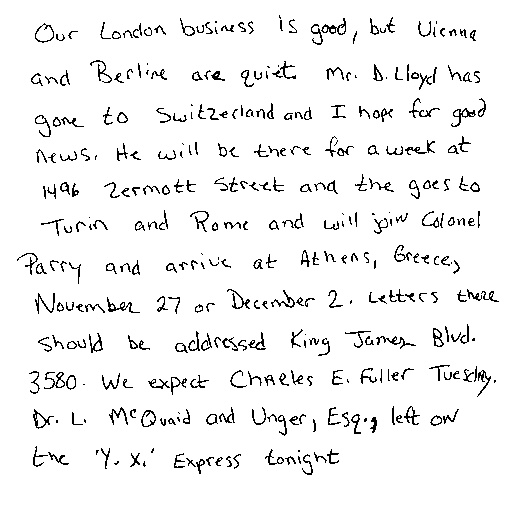 Our London business is good, but Vienna
and Berline are quiet. Mr. D. Lloyd has
gone to Switzerland and I hope for good
news. He will be there for a week at
1496 Zermott Street and the goes to
Turin and Rome and will join Colonel
Parry and arrive at Athens, Greece,
November 27 or December 2. Letters there
should be addressed King James Blvd.
3580. We expect Charles E. Fuller Tuesday.
Dr. L. McQuaid and Unger, Esq., left on
the 'Y. X.' Express tonight